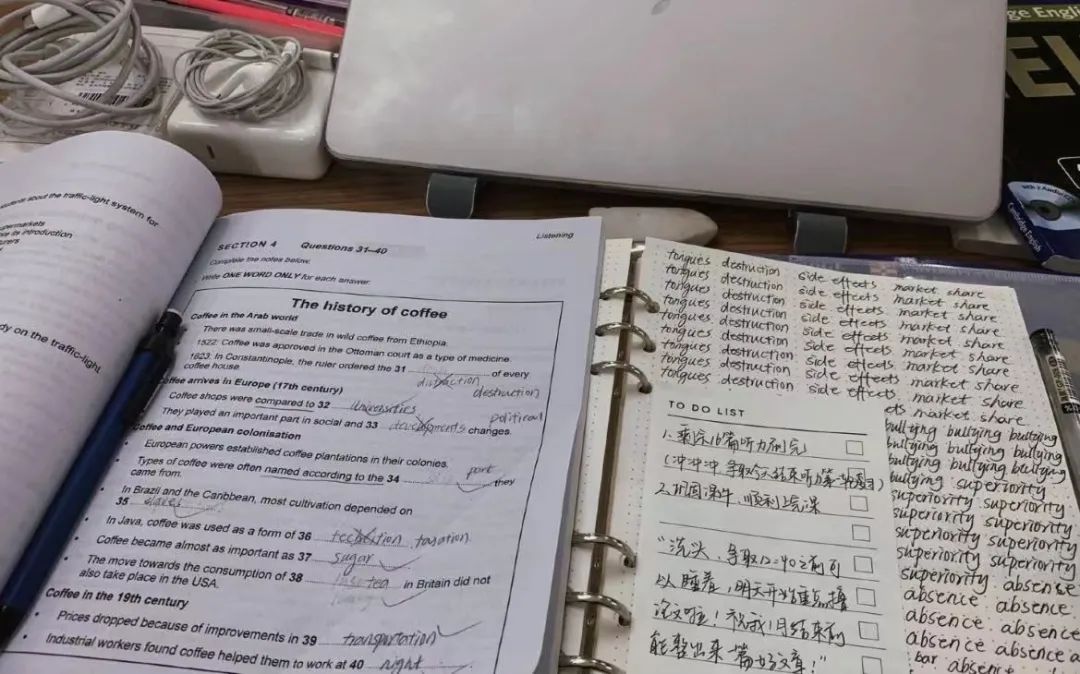 students about the traffic-light system for
supermarkets
its introduction
dy on the traffic-light
SECTION 4 Questions 31–40
Listening
Complete the notes below.
Write ONE WORD ONLY for each answer.
The history of coffee
Coffee in the Arab world
There was small-scale trade in wild coffee from Ethiopia.
1522: Coffee was approved in the Ottoman court as a type of medicine.
1623: In Constantinople, the ruler ordered the 31 distraction of every destruction
coffee house.
Coffee arrives in Europe (17th century)
Coffee shops were compared to 32 universities
They played an important part in social and 33 developments changes. political
Coffee and European colonisation
European powers established coffee plantations in their colonies.
Types of coffee were often named according to the 34 port they
came from.
In Brazil and the Caribbean, most cultivation depended on
35 slaves
In Java, coffee was used as a form of 36 taxation
Coffee became almost as important as 37 sugar
The move towards the consumption of 38 tea in Britain did not
also take place in the USA.
Coffee in the 19th century
Prices dropped because of improvements in 39 transportation
Industrial workers found coffee helped them to work at 40 night
tongues destruction side effects market share
tongues destruction side effects market share
tongues destruction side effects market share
tongues destruction side effects market share
tongues destruction side effects market share
tongues destruction side effects market share
tongues destruction side effects market share
tongues destruction side effects market share
market share
bullying bullying bullying
bullying bullying bullying
bullying bullying bullying
bullying superiority
superiority superiority
superiority superiority
superiority superiority
superiority superiority
superiority absence
absence absence
absence absence
absence absence
absence
TO DO LIST
1.乘涂16篇听力刷完
(冲冲冲 争取今天结束听力第一轮题目)
2.巩固课件,顺利上完课
"洗头,争取12:40之前可
以睡着,明天开始重点撸
论文啦!祝我1月结束前
能整出来一篇好文章!"
ge English
Cambridge English